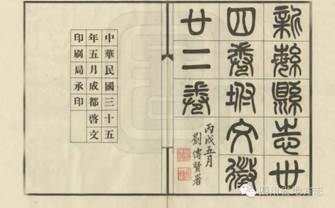 新繁縣志卅
四卷坿文徵
廿二卷
丙戌五月
劉傳賢署
中華民國三十五
年五月成都啓文
印刷局承印